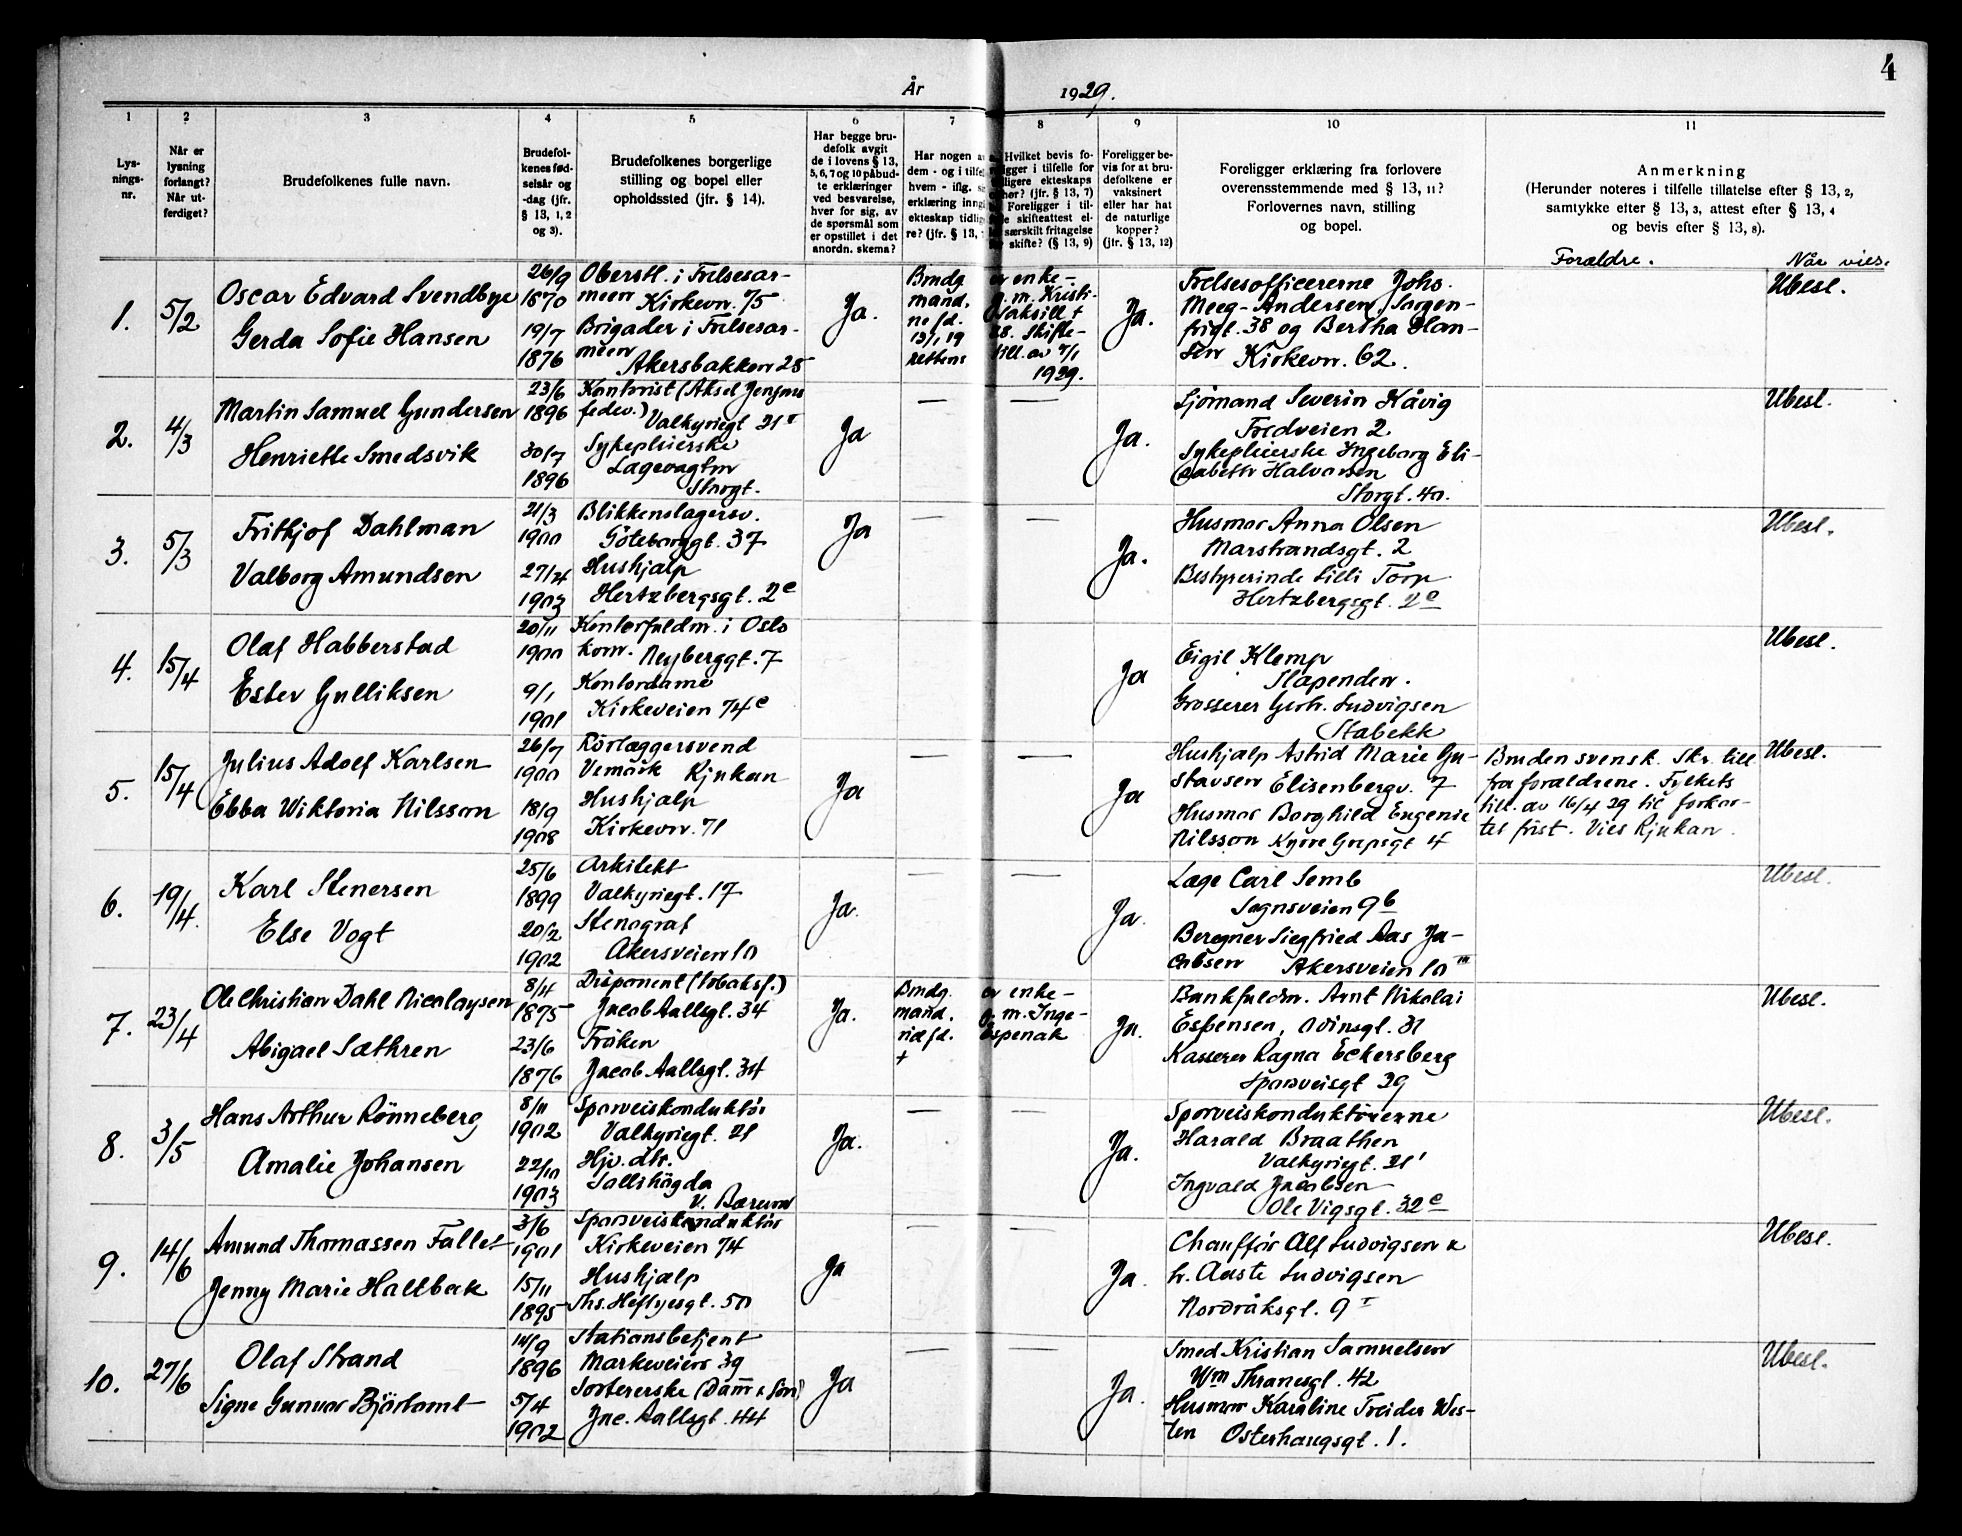 4
År 1929.
1
2
3
4
5
6
7
8
9
10
11
Lys-
nings-
nr.
Når er
lysning
forlangt?
Når ut-
ferdiget?
Brudefolkenes fulle navn.
Brudefol-
kenes fød-
selsår og
-dag (jfr.
§ 13, 1, 2
og 3).
Brudefolkenes borgerlige
stilling og bopel eller
opholdssted (jfr. § 14).
Har begge bru-
defolk avgit
de i lovens § 13,
5, 6, 7 og 10 påbud-
te erklæringer
ved besvarelse,
hver for sig, av
de spørsmål som
er opstillet i det
anordn. skema?
Har nogen a
dem - og i tilfel
hvem - iflg. s
erklæring inng
ekteskap tidlig
re? (jfr. § 13,
Hvilket bevis fo-
ligger i tilfelle for
ligere ekteskaps
hør? (jfr. § 13, 7)
Foreligger i til-
le skifteattest el-
særskilt fritagelse
skifte? (§ 13, 9)
Foreligger be-
vis for at bru-
defolkene er
vaksinert
eller har hat
de naturlige
kopper?
(jfr. § 13, 12)
Foreligger erklæring fra forlovere
overensstemmende med § 13, 11?
Forlovernes navn, stilling
og bopel.
Anmerkning
(Herunder noteres i tilfelle tillatelse efter § 13, 2,
samtykke efter § 13, 3, attest efter § 13, 4
og bevis efter § 13, 8).
Forældre. Når vies.
1. 5/2
Oscar Edvard Svendbye
Gerda Sofie Hansen
26/9
1870
19/7
1876
Oberstl. i Frelsesar-
meen Kirkevn. 75
Brigader i Frelsesar-
meen
Akersbakken 28
Ja.
Brudg. er enke-
mand. e. m. Kristi-
ne fd. Vaksill +
13/1 19 28. Skifte-
rettens till. av 7/1
1929.
Ja.
Frelsesofficererne Johs.
Meeg-Andersen, Sorgen-
frigt. 38 og Bertha Han-
sen Kirkevn. 62.
Ubesl.
2. 4/3
Martin Samuel Gundersen
Henriette Smedsvik
23/6
1896
30/7
1896
Kontorist (Aksel Jensens
fedev.)
Valkyriegt 21 I
Sykepleierske
Lægevagten
Storgt.
Ja
— —
Ja.
Sjömand Severin Håvig
Fredveien 2
Sykepleierske Ingeborg Eli-
sabeth Halvorsen
Storgt. 40.
Ubesl.
3. 5/3
Frithjof Dahlman
Valborg Amundsen
21/3
1900
27/4
1903
Blikkenslagersv.
Göteborggt. 37
Hushjælp
Hertzbergsgt. 2c
Ja
— —
Ja.
Husmor Anna Olsen
Marstrandsgt. 2
Bestyrerinde Lilli Torp
Hertzbergsgt. 2c
Ubesl.
4. 15/4
Olaf Habberstad
Ester Gulliksen
20/11
1900
9/1
1901
Kontorfuldm. i Oslo
kom. Neuberggt. 7
Kontordame
Kirkeveien 74c
Ja
Eigil Klemp
Slependen.
Grosserer Gerh. Ludvigsen
Stabekk
Ubesl.
5. 15/4
Julius Adolf Karlsen
Ebba Wiktoria Nilsson
26/7
1900
18/9
1908
Rörlæggersvend
Vemork Rjukan
Hushjælp
Kirkevn. 71
Ja
— —
Ja
Hushjælp Astrid Marie Gu-
stavsen Elisenbergv. 7
Husmor Borghild Eugenie
Nilsson Kyrre Grepsgt 4
Bruden svensk. Skr. till
fra forældrene. Fylkets
till. av 16/4 29 til forkor-
tet frist. Vies Rjukan.
Ubesl.
6. 19/4.
Karl Stenersen
Else Vogt
25/6
1899
20/2
1902
Arkitekt
Valkyriegt. 17
Stenograf
Akersveien 10
Ja.
— —
Ja.
Læge Carl Semb
Sognsveien 9b
Beregner Siegfried Aas Ja-
cobsen Akersveien 10 III
Ubesl.
7. 23/4
Ole Christian Dahl Nicolaysen
Abigael Sæthren
8/4
1875
23/6
1876
Disponent (tobaksf.)
Jacob Aallsgt. 34
Fröken
Jacob Aallsgt. 34
Ja.
Brudg. er enke-
mand. e. m. Inge-
ri fd. Espenak
+
Ja.
Bankfuldm. Arnt Nikolai
Espensen, Odinsgt. 31
Kasserer Ragna Eckersberg
Sporveisgt 39
Ubesl.
8. 3/5
Hans Arthur Rönneberg
Amalie Johansen
8/11
1902
22/10
1903
Sporveiskonduktör
Valkyriegt. 21
Hjv. dtr.
Sollihögda
V. Bærum
Ja.
— —
Ja.
Sporveiskonduktörerne
Harald Braathen
Valkyriegt. 21 I
Ingvald Jacobsen
Ole Vigsgt. 32c
Ubesl.
9. 14/6
Amund Thomassen Fallet
Jenny Marie Haltbæk
3/6
1901
15/11
1895
Sporveiskonduktör
Kirkeveien 74
Hushjælp
Ths. Heftyesgt. 50
Ja
— —
Ja.
Chaufför Alf Ludvigsen &
h. Aaste Ludvigsen
Nordråksgt. 9 I
Ubesl.
10. 27/6
Olaf Strand
Signe Gunvor Björtomt
14/9
1896
5/4
1902
Stationsbetjent
Markveien 39
Sortererske (Damm & Sön)
Jac. Aallsgt. 44
Ja
— —
Ja.
Smed Kristian Samuelsen
Wm Thranesgt. 42
Husmor Karoline Treider Wes-
ten Osterhausgt. 1.
Ubesl.